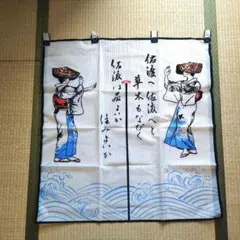 佐渡へ佐渡へと
草木もなびく
佐渡は居よいか
住みよいか